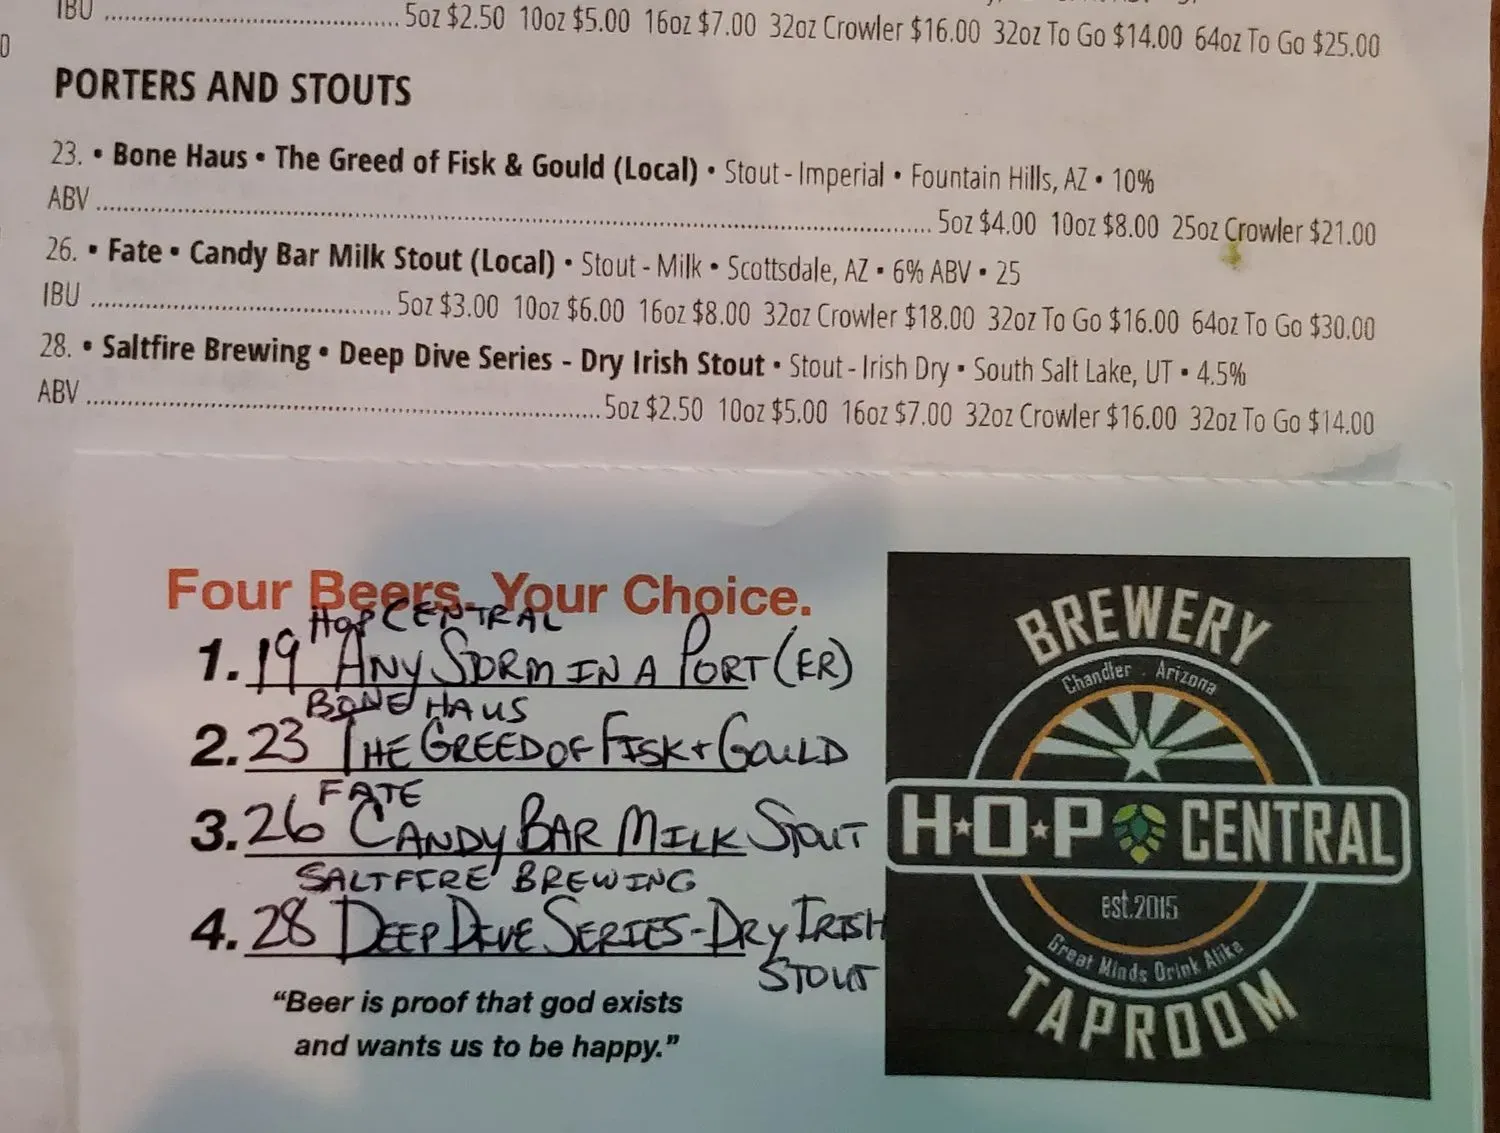 IBU ........................................ 5oz $2.50 10oz $5.00 16oz $7.00 32oz Crowler $16.00 32oz To Go $14.00 64oz To Go $25.00
PORTERS AND STOUTS
23. • Bone Haus • The Greed of Fisk & Gould (Local) • Stout - Imperial • Fountain Hills, AZ • 10%
ABV ........................................ 5oz $4.00 10oz $8.00 25oz Crowler $21.00
26. • Fate • Candy Bar Milk Stout (Local) • Stout - Milk • Scottsdale, AZ • 6% ABV • 25
IBU ........................................ 5oz $3.00 10oz $6.00 16oz $8.00 32oz Crowler $18.00 32oz To Go $16.00 64oz To Go $30.00
28. • Saltfire Brewing • Deep Dive Series - Dry Irish Stout • Stout - Irish Dry • South Salt Lake, UT • 4.5%
ABV ........................................ 5oz $2.50 10oz $5.00 16oz $7.00 32oz Crowler $16.00 32oz To Go $14.00
Four Beers. Your Choice.
HOP CENTRAL
1. 19 ANY STORM IN A PORT(ER)
BONE HAUS
2. 23 THE GREED OF FISK + GOULD
FATE
3. 26 CANDY BAR MILK STOUT
SALTFIRE BREWING
4. 28 DEEP DIVE SERIES-DRY IRISH
STOUT
"Beer is proof that god exists
and wants us to be happy."
BREWERY
Chandler . Arizona
H★O★P CENTRAL
est.2015
Great Minds Drink Alike
TAPROOM